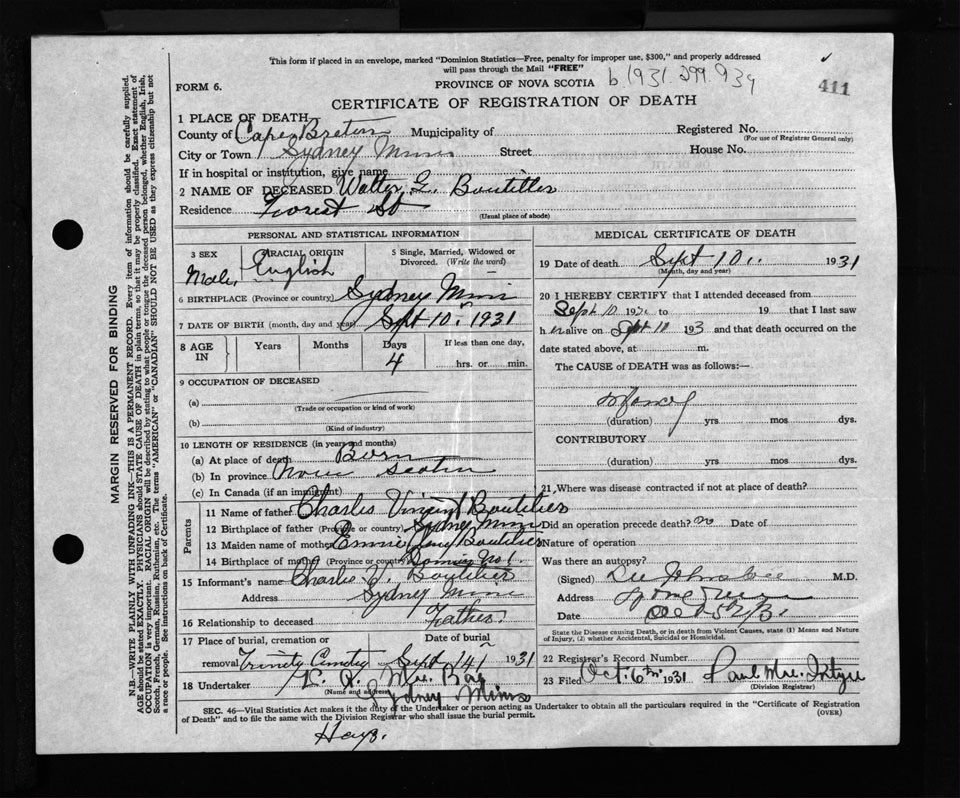 This form if placed in an envelope, marked "Dominion Statistics—Free, penalty for improper use, $300," and properly addressed
will pass through the Mail "FREE"
b 1931.299.939
411
FORM 6.
PROVINCE OF NOVA SCOTIA
CERTIFICATE OF REGISTRATION OF DEATH
1 PLACE OF DEATH
County of Cape Breton Municipality of Registered No.
(For use of Registrar General only)
City or Town Sydney Mines Street House No.
If in hospital or institution, give name
2 NAME OF DECEASED Walter Boutilier
Residence Forest St
(Usual place of abode)
PERSONAL AND STATISTICAL INFORMATION
3 SEX Male
4 RACIAL ORIGIN English
5 Single, Married, Widowed or Divorced. (Write the word)
6 BIRTHPLACE (Province or country) Sydney Mines
7 DATE OF BIRTH (month, day and year) Sept 10 1931
8 AGE IN Years Months Days If less than one day,
4 hrs. or min.
9 OCCUPATION OF DECEASED
(a)
(Trade or occupation or kind of work)
(b)
(Kind of industry)
10 LENGTH OF RESIDENCE (in years and months)
(a) At place of death Born
(b) In province Nova Scotia
(c) In Canada (if an immigrant)
Parents
11 Name of father Charles Vincent Boutilier
12 Birthplace of father (Province or country) Sydney Mines
13 Maiden name of mother Boutilier
14 Birthplace of mother (Province or country) Dominion No 1
15 Informant's name Charles V. Boutilier
Address Sydney Mines
16 Relationship to deceased Father
17 Place of burial, cremation or Date of burial
removal Trinity Cemetery Sept 14 1931
18 Undertaker
(Name and address) Sydney Mines
MEDICAL CERTIFICATE OF DEATH
19 Date of death Sept 10 1931
(Month, day and year)
20 I HEREBY CERTIFY that I attended deceased from
Sept 10 193 to 19 that I last saw
h alive on Sept 10 193 and that death occurred on the
date stated above, at m.
The CAUSE of DEATH was as follows:—
Infancy
(duration) yrs mos dys.
CONTRIBUTORY
(duration) yrs mos dys.
21 Where was disease contracted if not at place of death?
Did an operation precede death? no Date of
Nature of operation
Was there an autopsy?
(Signed) M.D.
Address
Date
State the Disease causing Death, or in death from Violent Causes, state (1) Means and Nature
of Injury, (2) whether Accidental, Suicidal or Homicidal.
22 Registrar's Record Number
23 Filed Oct. 6th 1931 Paul
(Division Registrar)
SEC. 46—Vital Statistics Act makes it the duty of the Undertaker or person acting as Undertaker to obtain all the particulars required in the "Certificate of Registration
of Death" and to file the same with the Division Registrar who shall issue the burial permit. (OVER)
MARGIN RESERVED FOR BINDING
N.B.—WRITE PLAINLY WITH UNFADING INK—THIS IS A PERMANENT RECORD. Every item of information should be carefully supplied.
AGE should be stated EXACTLY. PHYSICIANS should STATE CAUSE OF DEATH in plain terms, so that it may be properly classified. Exact statement of
OCCUPATION is very important. RACIAL ORIGIN will be described by stating to what people or tongue the deceased person belonged, whether English, Irish,
Scotch, French, German, Russian, Ruthenian, etc. The terms "AMERICAN" or "CANADIAN" SHOULD NOT BE USED as they express citizenship but not
a race or people. See instructions on back of Certificate.